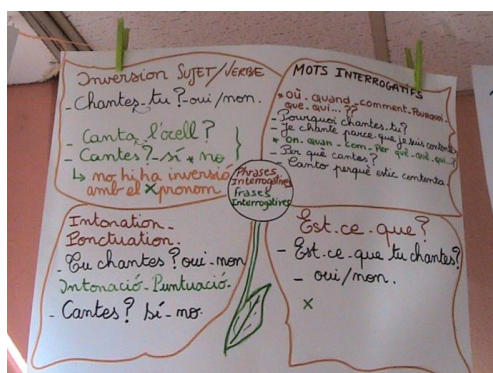 Inversion SUJET/VERBE
- Chantes-tu ? - oui/non.
- Canta l'ocell ?
- Cantes ? - sí * no
↳ no hi ha inversió
amb el × pronom.
MOTS INTERROGATIFS
* où - quand - comment - Pourquoi -
que - qui...??
- Pourquoi chantes-tu ?
- Je chante parce que je suis contente
* on - quan - com - Per què - què - qui...?
- Per què cantes ?
- Canto perquè estic contenta.
Phrases
Interrogatives
Frases
Interrogatives
Intonation -
Ponctuation.
- Tu chantes ? oui - non
Intonació - Puntuació.
- Cantes ? sí - no.
Est-ce-que ?
- Est-ce-que tu chantes ?
- oui/non.
×